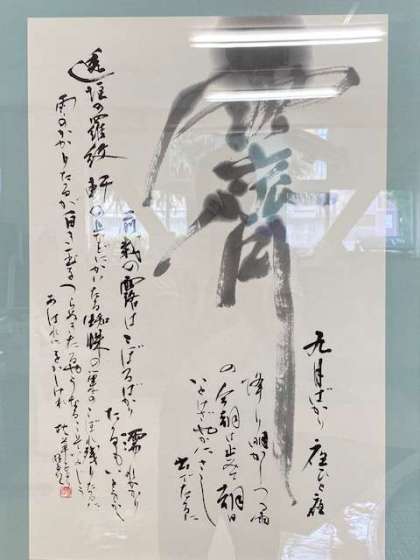 霽
九月ばかり夜ひと夜
降り明かしつる雨
の今朝は止みて朝日
いとけざやかにさし
出でたるに
前栽の露はこぼるばかり濡れかかり
たるもいとをかし
透垣の羅紋軒の上などにかいたる蜘蛛の巣のこぼれ残りたるに
雨のかかりたるが白き玉をつらぬきたるやうなるこそいみじう
あはれにをかしけれ